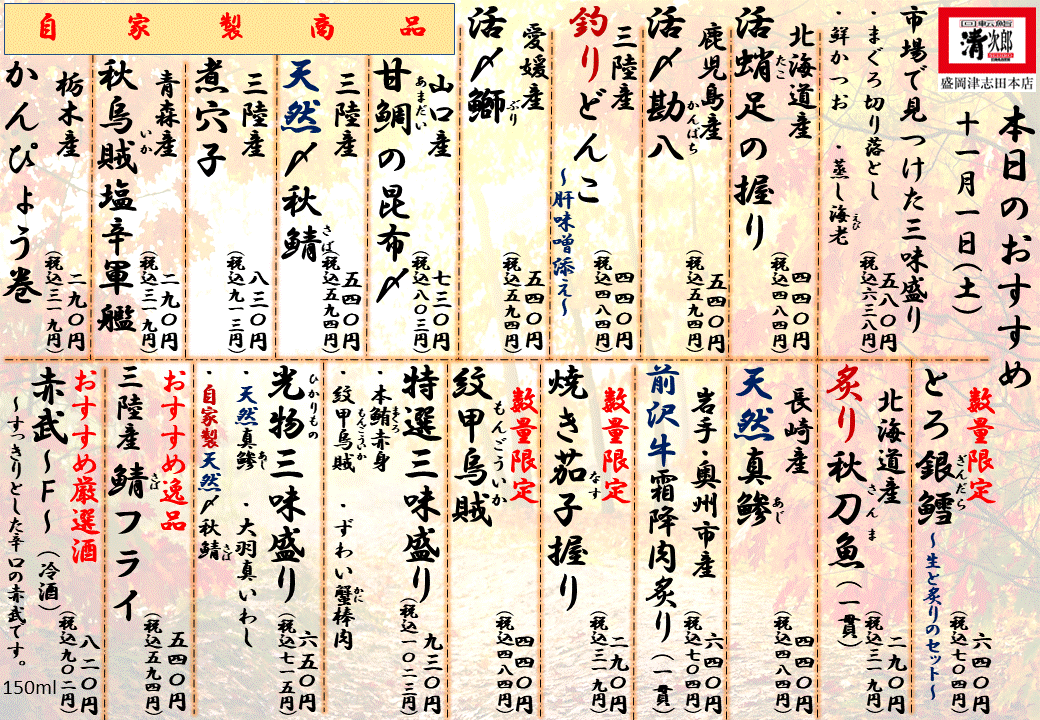 回転鮨
清次郎
盛岡津志田本店
本日のおすすめ
十一月一日(土)
市場で見つけた三味盛り
・まぐろ切り落とし
・鮮かつお ・蒸し海老
えび
五八〇円
(税込六三八円)
北海道産
活蛸足の握り
たこ
四四〇円
(税込四八四円)
鹿児島産
活〆勘八
かんぱち
五四〇円
(税込五九四円)
三陸産
釣りどんこ
~肝味噌添え~
四四〇円
(税込四八四円)
愛媛産
活〆鰤
ぶり
五四〇円
(税込五九四円)
自家製高品
山口産
甘鯛の昆布〆
あまだい
七三〇円
(税込八〇三円)
三陸産
天然〆秋鯖
さば
五四〇円
(税込五九四円)
三陸産
煮穴子
八三〇円
(税込九一三円)
青森産
秋烏賊塩辛軍艦
いか
二九〇円
(税込三一九円)
栃木産
かんぴょう巻
二九〇円
(税込三一九円)
数量限定
とろ銀鱈
ぎんだら
~生と炙りのセット~
六四〇円
(税込七〇四円)
北海道産
炙り秋刀魚(一貫)
さんま
二九〇円
(税込三一九円)
長崎産
天然真鯵
あじ
四四〇円
(税込四八四円)
岩手・奥州市産
前沢牛霜降肉炙り(一貫)
六四〇円
(税込七〇四円)
数量限定
焼き茄子握り
なす
二九〇円
(税込三一九円)
数量限定
紋甲烏賊
もんごういか
四四〇円
(税込四八四円)
特選三味盛り
・本鮪赤身
まぐろ
・紋甲烏賊 ・ずわい蟹棒肉
もんごういか
かに
九三〇円
(税込一〇二三円)
光物三味盛り
ひかりもの
・天然真鯵 ・大羽真いわし
あじ
・自家製天然〆秋鯖
さば
六五〇円
(税込七一五円)
おすすめ逸品
三陸産鯖フライ
さば
五四〇円
(税込五九四円)
おすすめ厳選酒
赤武~F~(冷酒)
~すっきりとした辛口の赤武です。
八二〇円
(税込九〇二円)
150ml